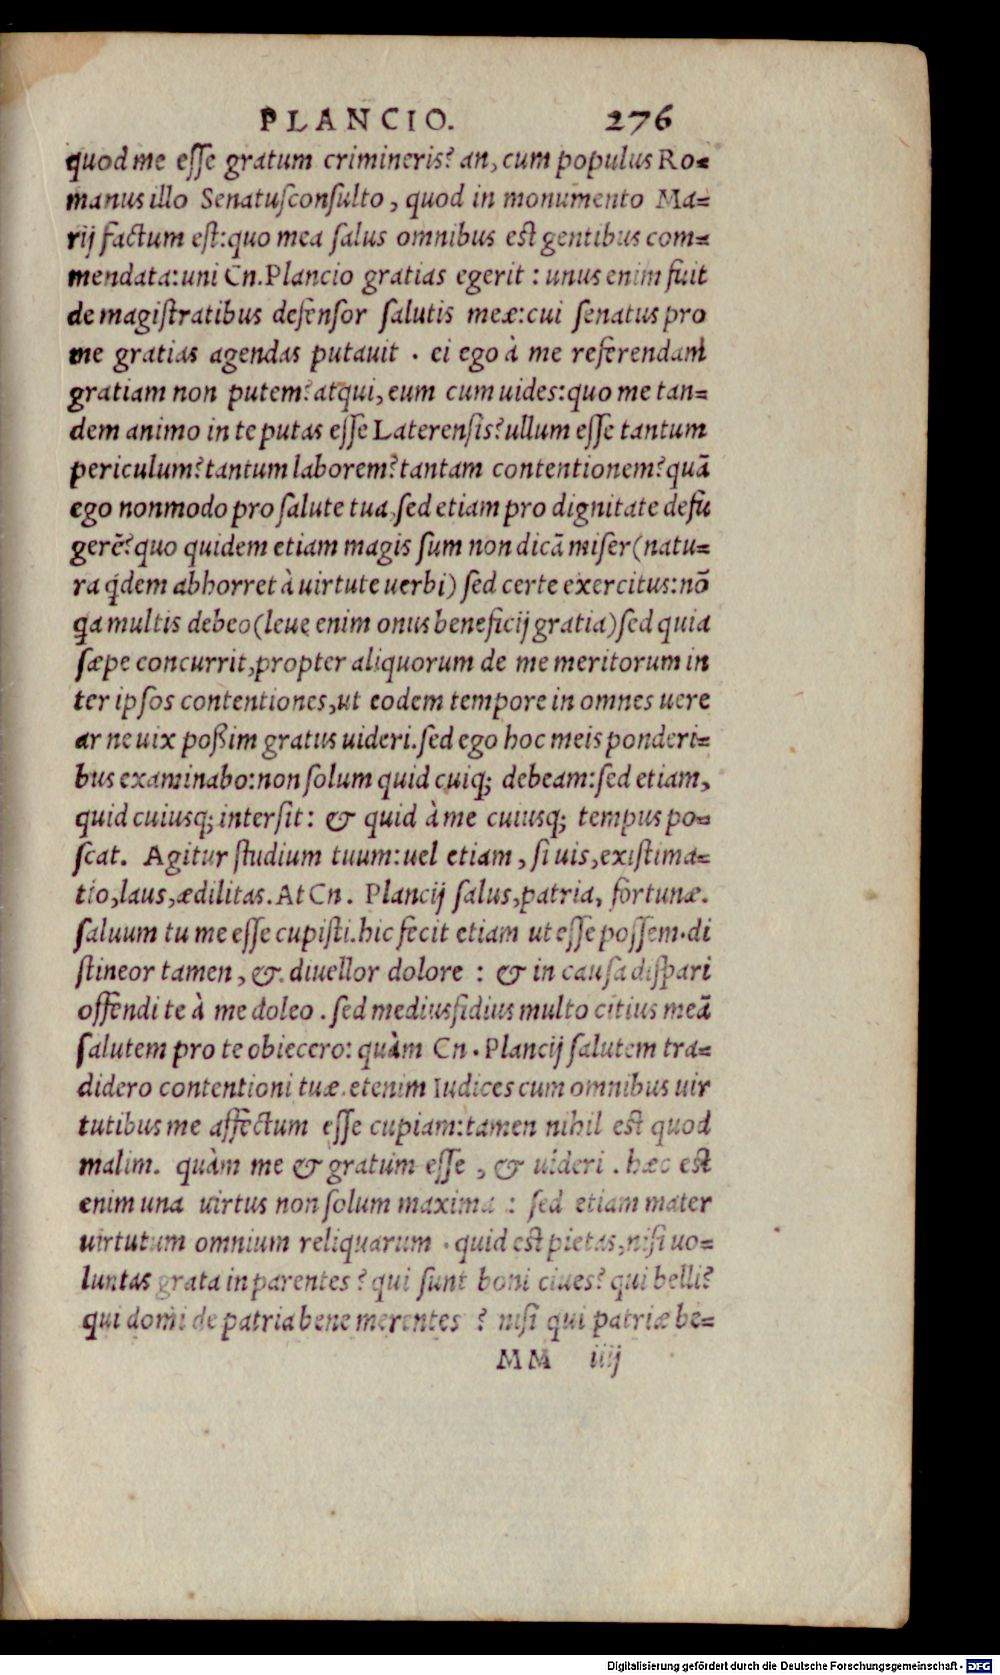 PLANCIO. 276
quod me eſſe gratum crimineris? an, cum populus Ro=
manus illo Senatuſconſulto, quod in monumento Ma=
rij factum eſt: quo mea ſalus omnibus eſt gentibus com=
mendata: uni Cn. Plancio gratias egerit: unus enim fuit
de magiſtratibus defenſor ſalutis meæ: cui ſenatus pro
me gratias agendas putauit. ei ego à me referendam
gratiam non putem? atqui, eum cum uides: quo me tan=
dem animo in te putas eſſe Laterenſis? ullum eſſe tantum
periculum? tantum laborem? tantam contentionem? quā
ego nonmodo pro ſalute tua, ſed etiam pro dignitate defu
gerē? quo quidem etiam magis ſum non dicā miſer (natu=
ra q́dem abhorret à uirtute uerbi) ſed certe exercitus: nō
q́a multis debeo (leue enim onus beneficij gratia) ſed quia
ſæpe concurrit, propter aliquorum de me meritorum in
ter ipſos contentiones, ut eodem tempore in omnes uere
ar ne uix poßim gratus uideri. ſed ego hoc meis ponderi=
bus examinabo: non ſolum quid cuiq; debeam: ſed etiam,
quid cuiusq; interſit: & quid à me cuiusq; tempus po=
ſcat. Agitur ſtudium tuum: uel etiam, ſi uis, exiſtima=
tio, laus, ædilitas. At Cn. Plancij ſalus, patria, fortunæ.
ſaluum tu me eſſe cupiſti. hic fecit etiam ut eſſe poſſem. di
ſtineor tamen, &. diuellor dolore: & in cauſa diſpari
offendi te à me doleo. ſed mediusfidius multo citius meā
ſalutem pro te obiecero: quàm Cn. Plancij ſalutem tra=
didero contentioni tuæ. etenim Iudices cum omnibus uir
tutibus me affectum eſſe cupiam: tamen nihil eſt quod
malim. quàm me & gratum eſſe, & uideri. hæc eſt
enim una uirtus non ſolum maxima: ſed etiam mater
uirtutum omnium reliquarum. quid eſt pietas, niſi uo=
luntas grata in parentes? qui ſunt boni ciues? qui belli?
qui domi de patria bene merentes? niſi qui patriæ be=
MM iiij
Digitalisierung gefördert durch die Deutsche Forschungsgemeinschaft - DFG